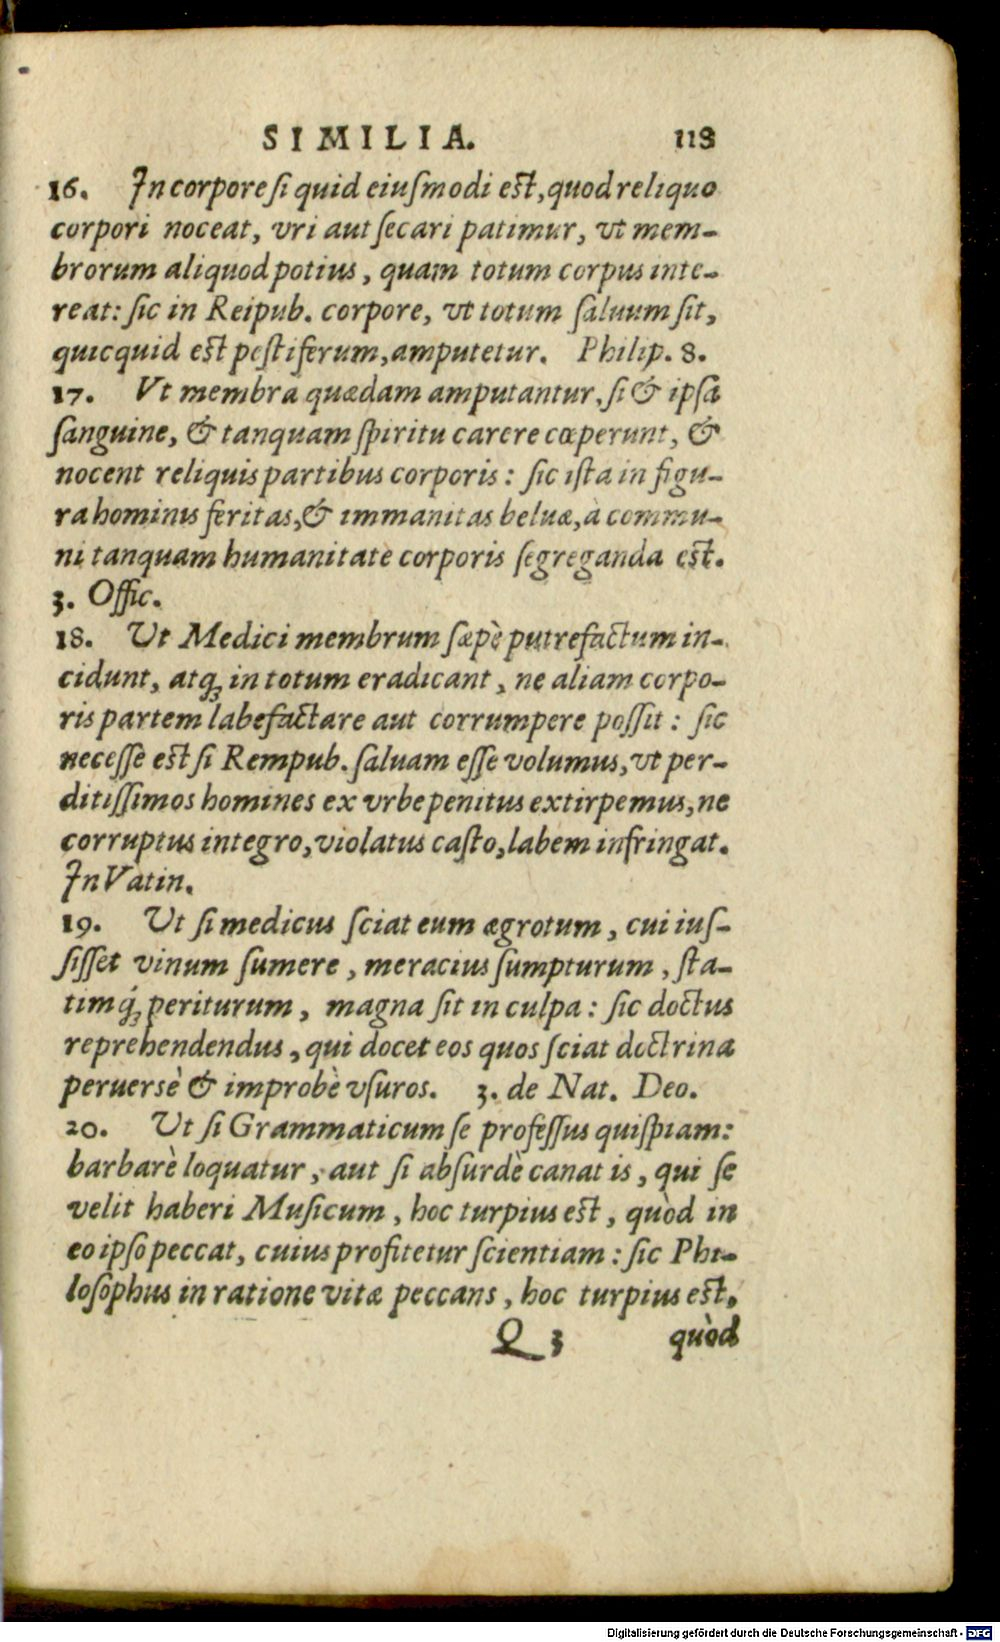 SIMILIA. 118
16. In corpore ſi quid eiuſmodi eſt, quod reliquo
corpori noceat, vri aut ſecari patimur, vt mem-
brorum aliquod potius, quam totum corpus inte-
reat: ſic in Reipub. corpore, vt totum ſaluum ſit,
quicquid eſt peſtiferum, amputetur. Philip. 8.
17. Vt membra quædam amputantur, ſi & ipſa
ſanguine, & tanquam ſpiritu carere cœperunt, &
nocent reliquis partibus corporis: ſic iſta in figu-
ra hominis feritas, & immanitas beluæ, à commu-
ni tanquam humanitate corporis ſegreganda eſt.
3. Offic.
18. Ut Medici membrum ſæpè putrefactum in-
cidunt, atq; in totum eradicant, ne aliam corpo-
ris partem labefactare aut corrumpere poſſit: ſic
neceſſe eſt ſi Rempub. ſaluam eſſe volumus, vt per-
ditiſſimos homines ex vrbe penitus extirpemus, ne
corruptus integro, violatus caſto, labem infringat.
In Vatin.
19. Ut ſi medicus ſciat eum ægrotum, cui iuſ-
ſiſſet vinum ſumere, meracius ſumpturum, ſta-
timq́; periturum, magna ſit in culpa: ſic doctus
reprehendendus, qui docet eos quos ſciat doctrina
peruersè & improbè vſuros. 3. de Nat. Deo.
20. Ut ſi Grammaticum ſe profeſſus quiſpiam:
barbarè loquatur, aut ſi abſurdè canat is, qui ſe
velit haberi Muſicum, hoc turpius eſt, quòd in
eo ipſo peccat, cuius profitetur ſcientiam: ſic Phi-
loſophus in ratione vitæ peccans, hoc turpius eſt,
Q 3 quòd
Digitalisierung gefördert durch die Deutsche Forschungsgemeinschaft - DFG